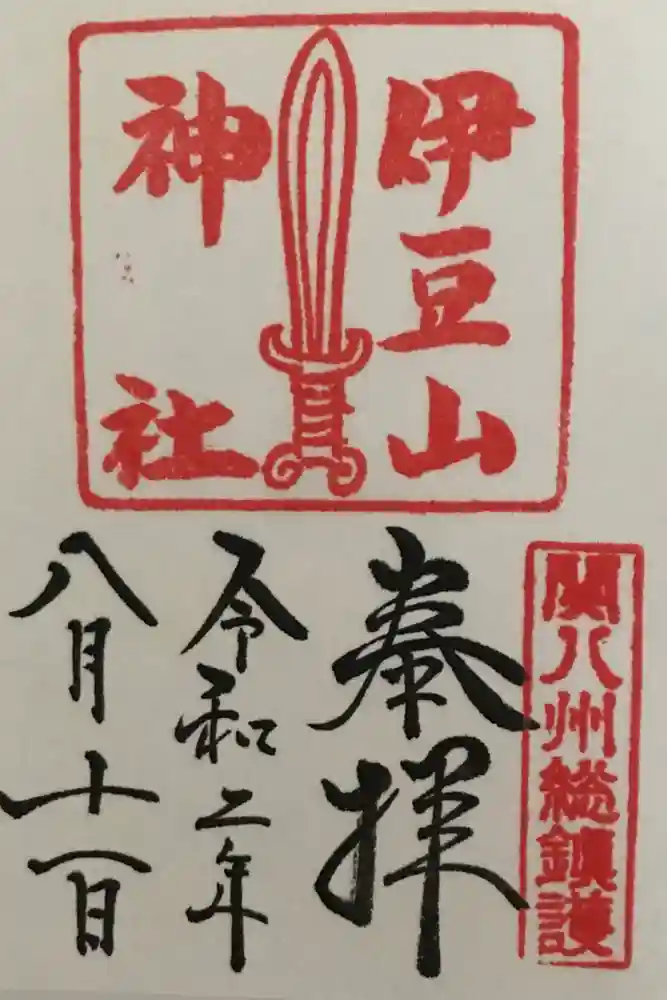 伊豆山
神社
関八州総鎮護
奉拝
令和二年
八月十一日